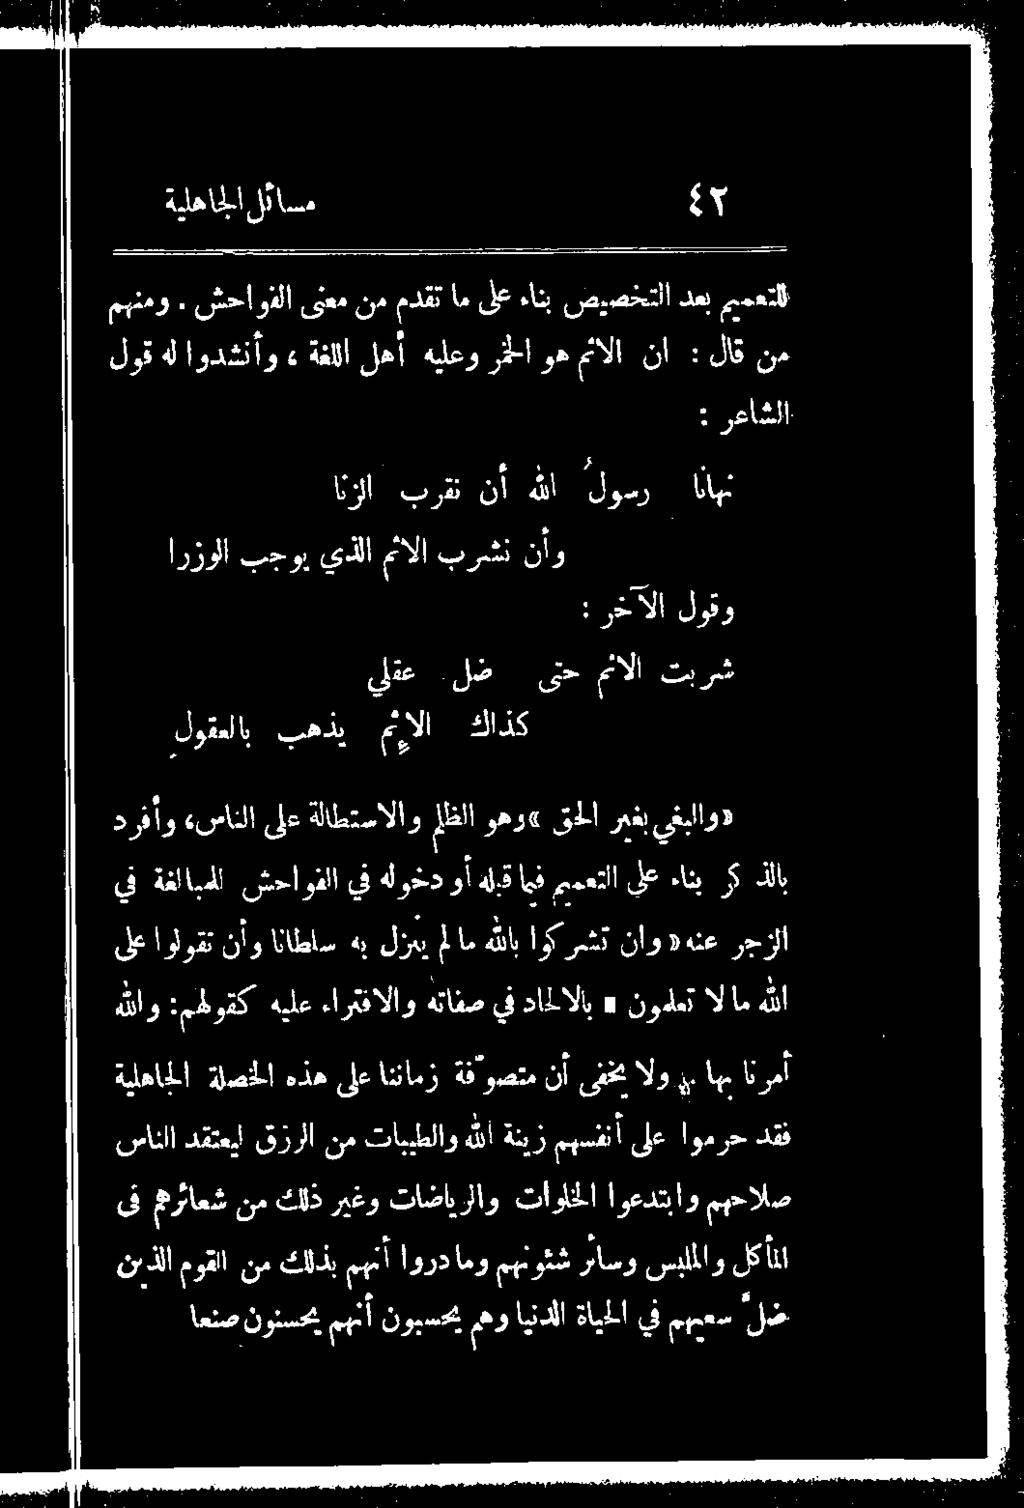 ٤٢ مسائل الجاهلية
للتعميم بعد التخصيص بناء على ما تقدم من معنى الفواحش . ومنهم
من قال : ان الاثم هو الخمر وعليه أهل اللغة ، وأنشدوا له قول
الشاعر :
نهانا رسولُ الله أن نقرب الزنا
وأن نشرب الاثم الذي يوجب الوزرا
وقول الآخر :
شربت الاثم حتى ضل عقلي
كذاك الاِثم يذهب بالعقولِ
«والبغي بغير الحق» وهو الظلم والاستطالة على الناس، وأفرد
بالذكر بناء على التعميم فيما قبله أو دخوله في الفواحش للمبالغة في
الزجر عنه «وان تشركوا بالله ما لم ينزل به سلطانا وأن تقولوا على
الله ما لا تعلمون » بالالحاد في صفاته والافتراء عليه كقولهم: والله
أمرنا بها . ولا يخفى أن متصوّفة زماننا على هذه الخصلة الجاهلية
فقد حرموا على أنفسهم زينة الله والطيبات من الرزق ليعتقد الناس
صلاحهم وابتدعوا الخلوات والرياضات وغير ذلك من شعائرهم فى
المأكل والملبس وسائر شئونهم وما دروا أنهم بذلك من القوم الذين
ضلّ سعيهم في الحياة الدنيا وهم يحسبون أنهم يحسنون صنعا